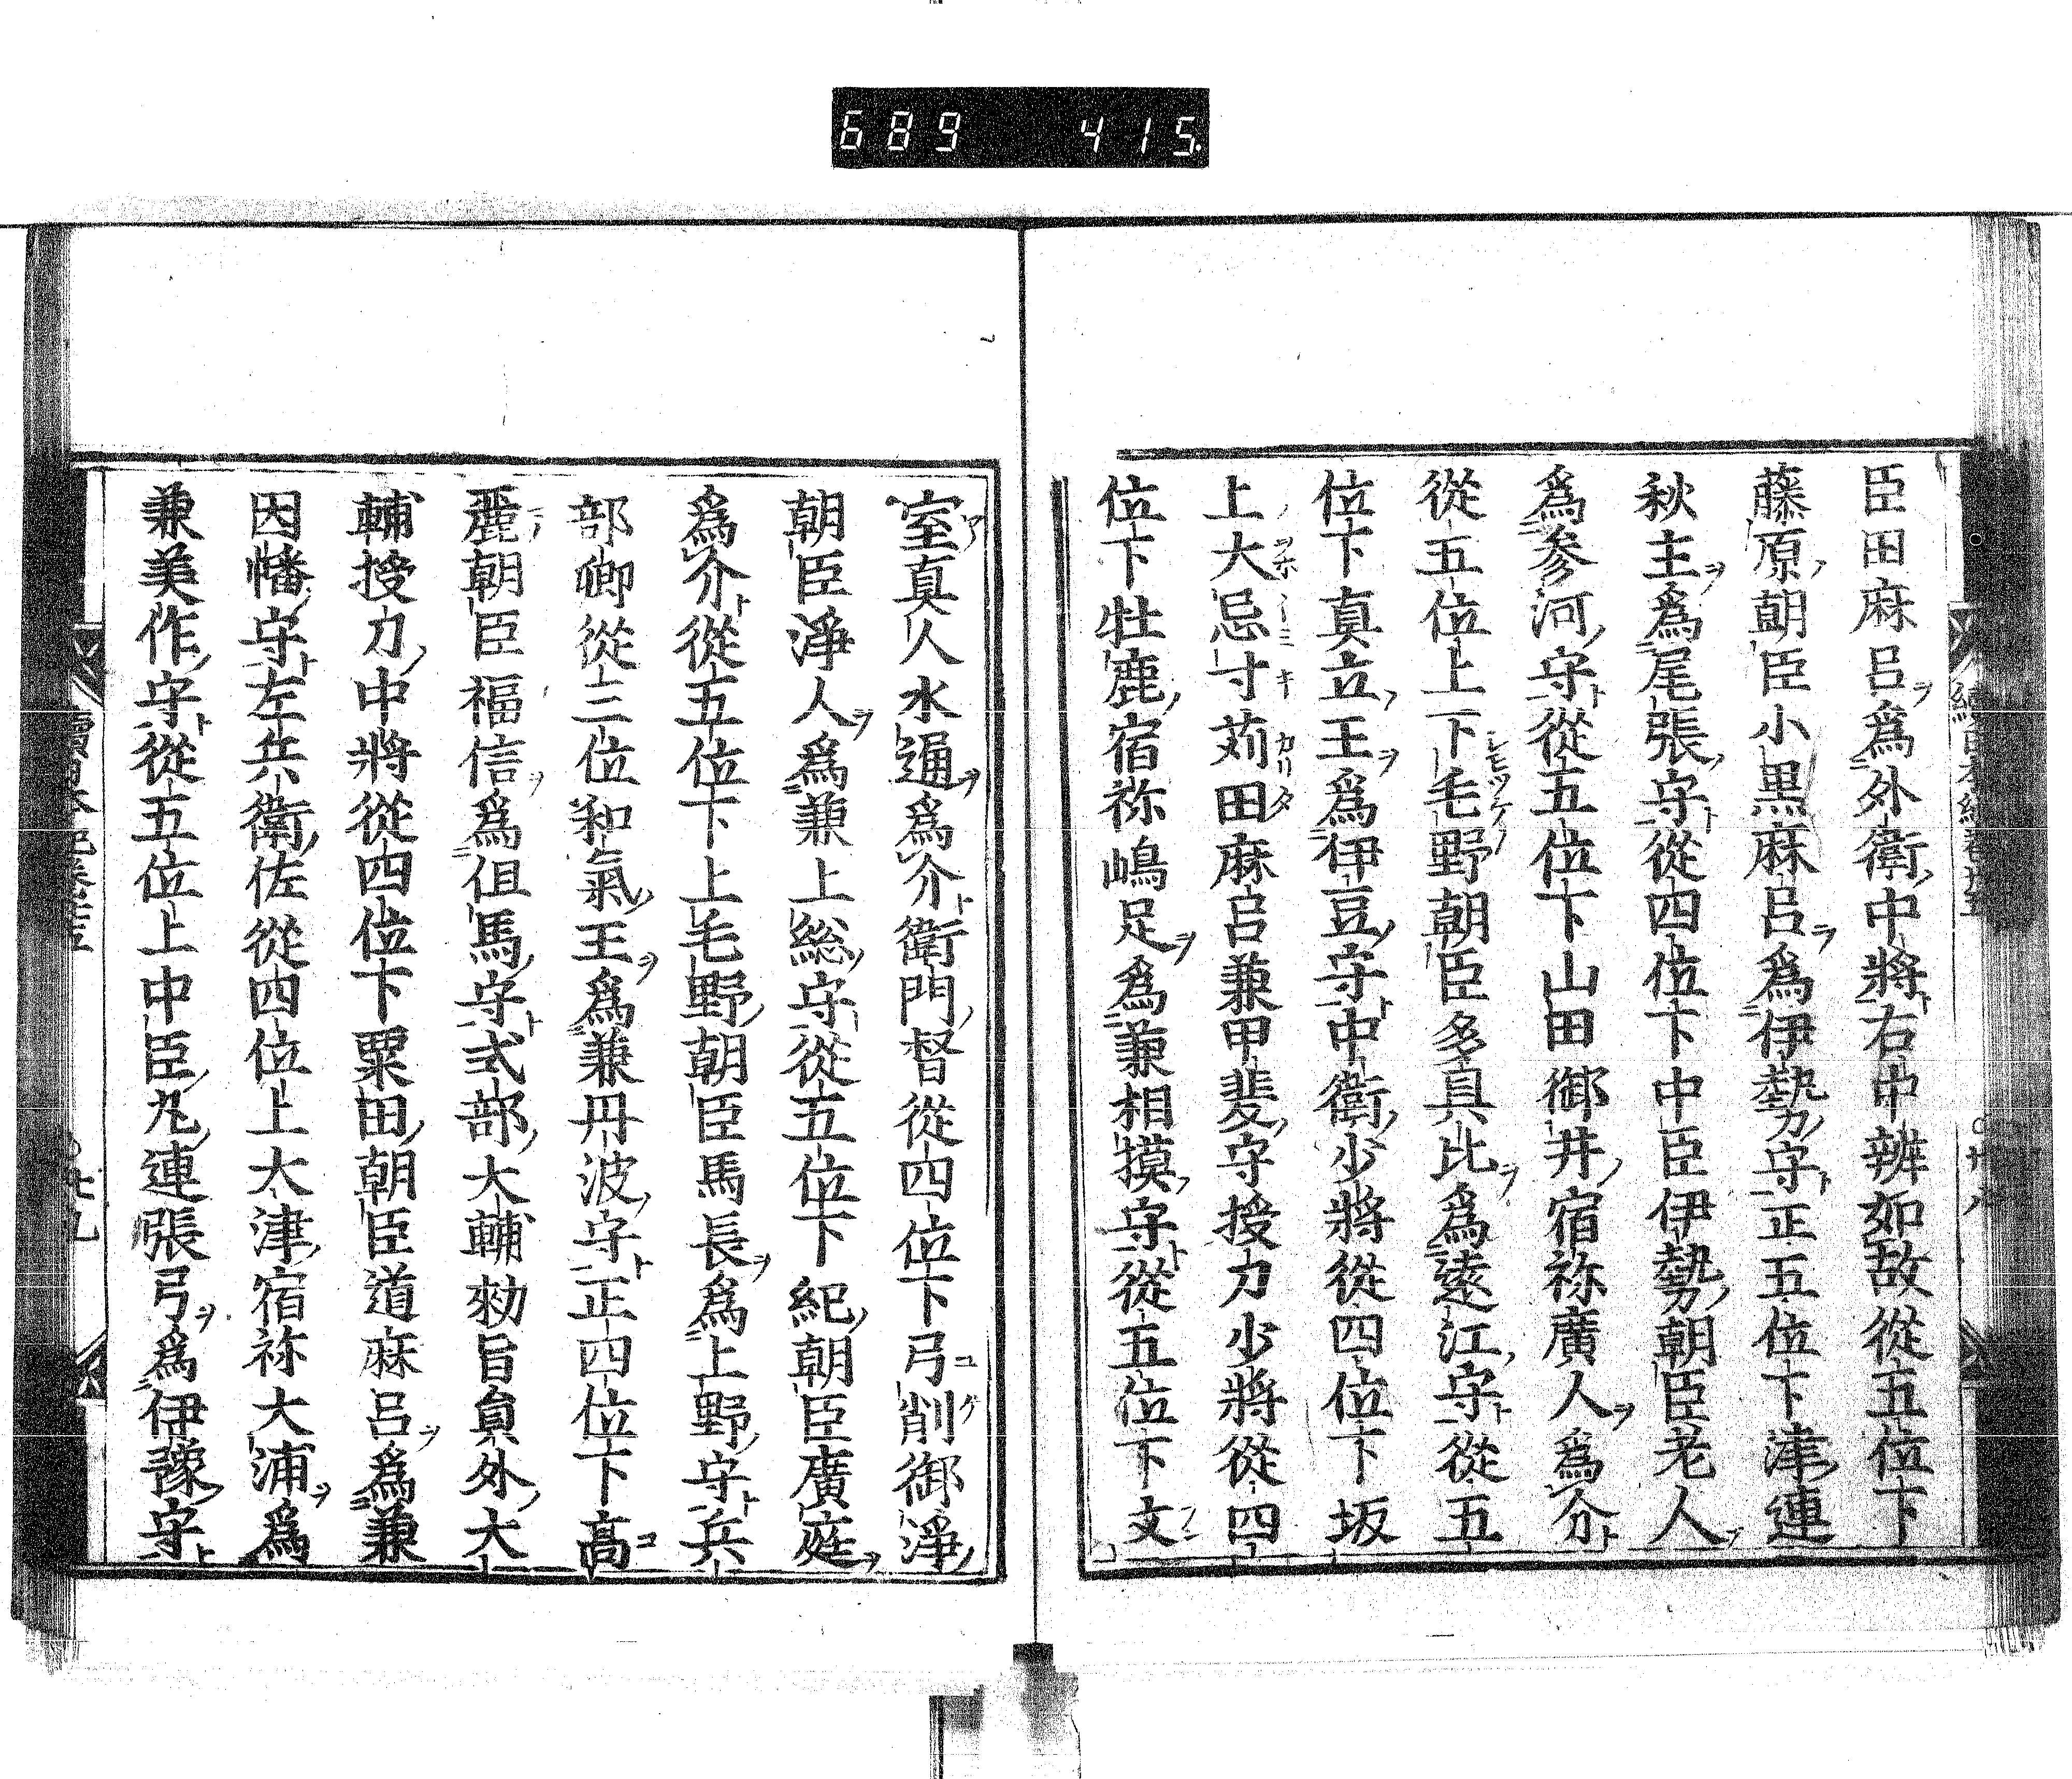 689 415
臣田麻呂爲外衛中將右中辨如故從五位下
藤原朝臣小黒麻呂爲伊勢守正五位下津連
秋主爲尾張守從四位下中臣伊勢朝臣老人
爲参河守從五位下山田御井宿祢廣人爲介
從五位上下毛野朝臣多具比爲遠江守從五
位下真立王爲伊豆守中衛少將從四位下坂
上大忌寸苅田麻呂兼甲斐守授刀少將從四
位下牡鹿宿祢嶋足爲兼相摸守從五位下文
室真人水通爲介衛門督從四位下弓削御淨
朝臣淨人爲兼上総守從五位下紀朝臣廣庭
爲介從五位下上毛野朝臣馬長爲上野守兵
部卿從三位和氣王爲兼丹波守正四位下高
麗朝臣福信爲但馬守式部大輔勅旨貟外大
輔授刀中將從四位下粟田朝臣道麻呂爲兼
因幡守左兵衛佐從四位上大津宿祢大浦爲
兼美作守從五位上中臣丸連張弓爲伊豫守